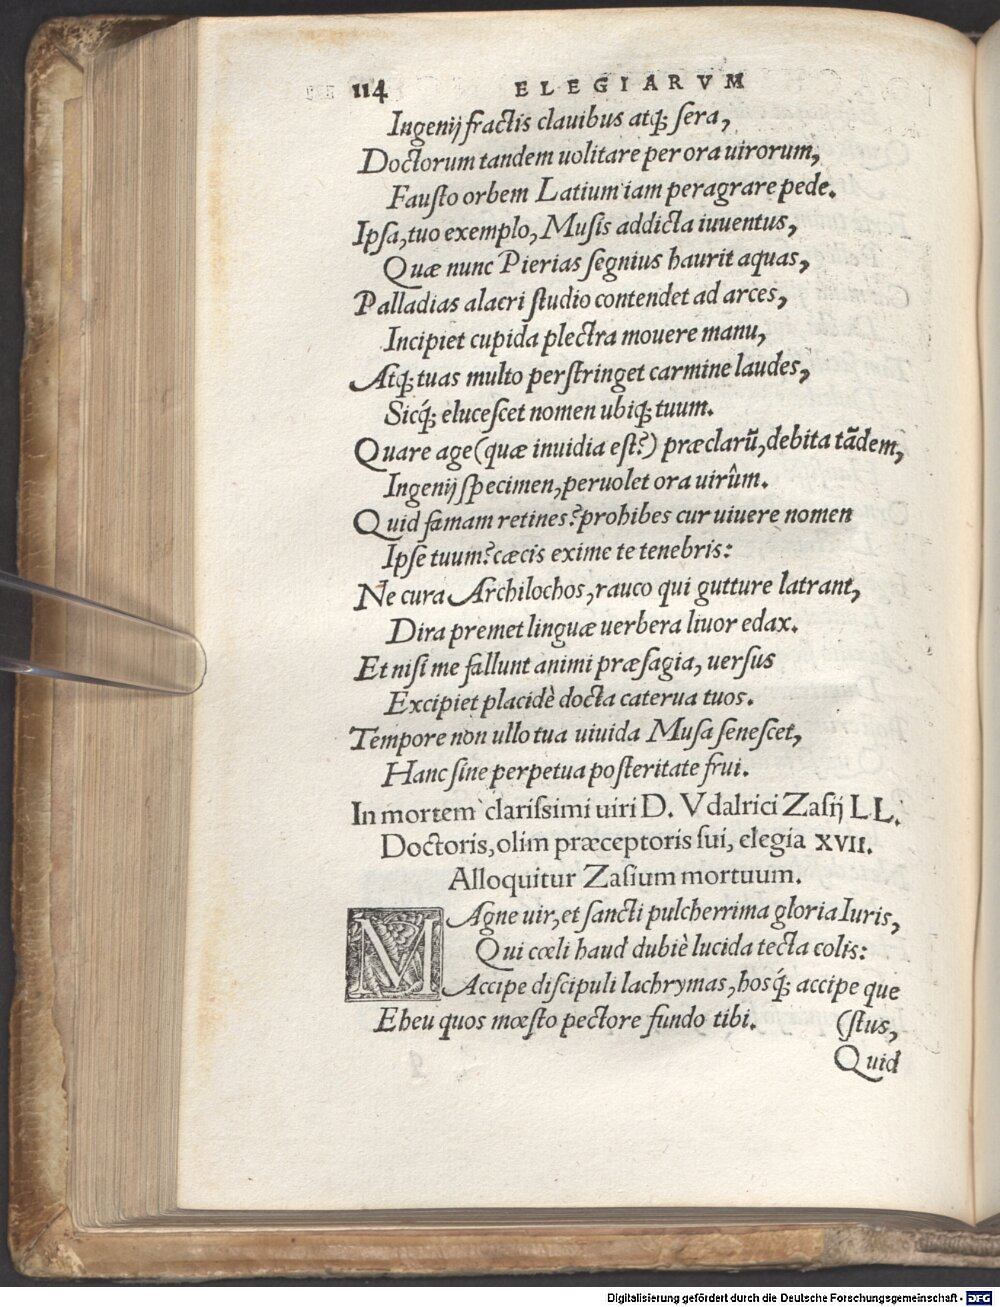 114 ELEGIARVM
Ingenij fractis clauibus atq; sera,
Doctorum tandem uolitare per ora uirorum,
Fausto orbem Latium iam peragrare pede.
Ipsa, tuo exemplo, Musis addicta iuuentus,
Quæ nunc Pierias segnius haurit aquas,
Palladias alacri studio contendet ad arces,
Incipiet cupida plectra mouere manu,
Atq; tuas multo perstringet carmine laudes,
Sicq́; elucescet nomen ubiq; tuum.
Quare age (quæ inuidia est?) præclarũ, debita tãdem,
Ingenij specimen, peruolet ora uirûm.
Quid famam retines? prohibes cur uiuere nomen
Ipse tuum? cæcis exime te tenebris:
Ne cura Archilochos, rauco qui gutture latrant,
Dira premet linguæ uerbera liuor edax.
Et nisi me fallunt animi præsagia, uersus
Excipiet placidè docta caterua tuos.
Tempore non ullo tua uiuida Musa senescet,
Hanc sine perpetua posteritate frui.
In mortem clarissimi uiri D. Vdalrici Zasij LL.
Doctoris, olim præceptoris sui, elegia XVII.
Alloquitur Zasium mortuum.
MAgne uir, et sancti pulcherrima gloria Iuris,
Qui cœli haud dubiè lucida tecta colis:
Accipe discipuli lachrymas, hosq́; accipe que
Eheu quos mœsto pectore fundo tibi. (stus,
Quid
Digitalisierung gefördert durch die Deutsche Forschungsgemeinschaft - DFG